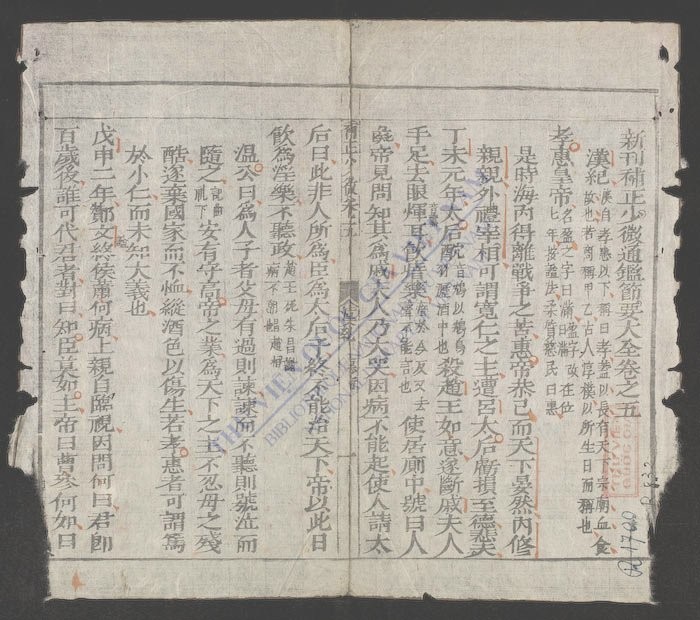 新刊補正少微通鑑節要大全卷之五
漢紀
孝惠皇帝 名盈之字曰滿 在位七年
是時海內得離戰爭之苦惠帝恭己而天下晏然內修
親親外禮宰相可謂寬仁之主遭呂太后虧損至德悲夫
丁未元年太后酖殺趙王如意遂斷戚夫人
手足去眼煇耳飲瘖藥使居廁中號曰人
彘帝見問知其爲戚夫人乃大哭因病不能起使人請太
后曰此非人所爲臣爲太后子終不能治天下帝以此日
飲爲淫樂不聽政
溫公曰爲人子者父母有過則諫諫而不聽則號泣而
隨之安有守高帝之業爲天下之主不忍母之殘
酷遂棄國家而不恤縱酒色以傷生若孝惠者可謂篤
於小仁而未知大義也
戊申二年酇文終侯蕭何病上親自臨視因問何曰君即
百歲後誰可代君者對曰知臣莫如主帝曰曹參何如曰
THƯ VIỆN QUỐC GIA VIỆT NAM
R.1700